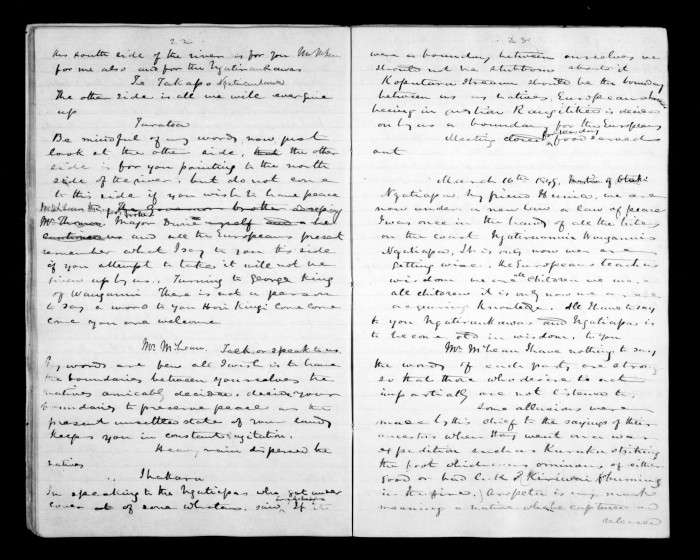 22
this south side of the river is for you Mr McLean
for me also and for the Ngatiraukawas
Te Takapo Ngatiraukawa
The other side is all we will ever give
up
Taratoa
Be mindful of my words now just
look at the other side, that the other
side is for you pointing to the north
side of the river but do not come
to this side if you wish to have peace
Mr McLean the Governor brother
Mr Thomas Major Durie myself and
us and all the Europeans present
remember what I say to you this side
if you attempt to take it will not be
given up by us. Turning to George King
of Wanganui There is not a person
to say a word to you Hori Kingi Come Come
Come you are welcome
Mr McLean. Talk, or speak to us
My words are few all I wish is to have
the boundaries between yourselves the
natives amicably decided. decide your
boundaries to preserve peace as the
present unsettled state of your lands
keeps you in constant agitation.
Heavy rain dispersed the
natives
Ihakara
In speaking to the Ngatiapas who got under
cover of some whatas. said, If
23
were a boundary between ourselves we
should not be stubborn should
Koputara Stream should be the boundary
between us as natives, European
being in question Rangitikei is decided
on by us a boundary for the Europeans
Meeting closed for food served
out
March 16th 1849. Meeting of
Ngatiapa, my friend Hunia, we are
now under a new law a law of peace
I was once in the hands of all the tribes
on the coast Ngatiraukawa Wanganui
Ngatiapa, It is only now we are
getting wise. the Europeans teach us
wisdom we are all children we are
all children it is only now we are
acquiring knowledge. All I have to say
to you Ngatiraukawas and Ngatiapas is
to become old in wisdom. to you
Mr McLean I have nothing to say,
the words of each party are strong
so that those who desire to act
impartially are not listened to,
Some allusions were
made by this chief to the sayings of their
ancestors when they went on a war
expedition such as Kuruku striking
the foot which was ominous of either
good or bad luck & Kiriwai & humming
in the fire. Aropeta is my mark
meaning a native who be captured and
released